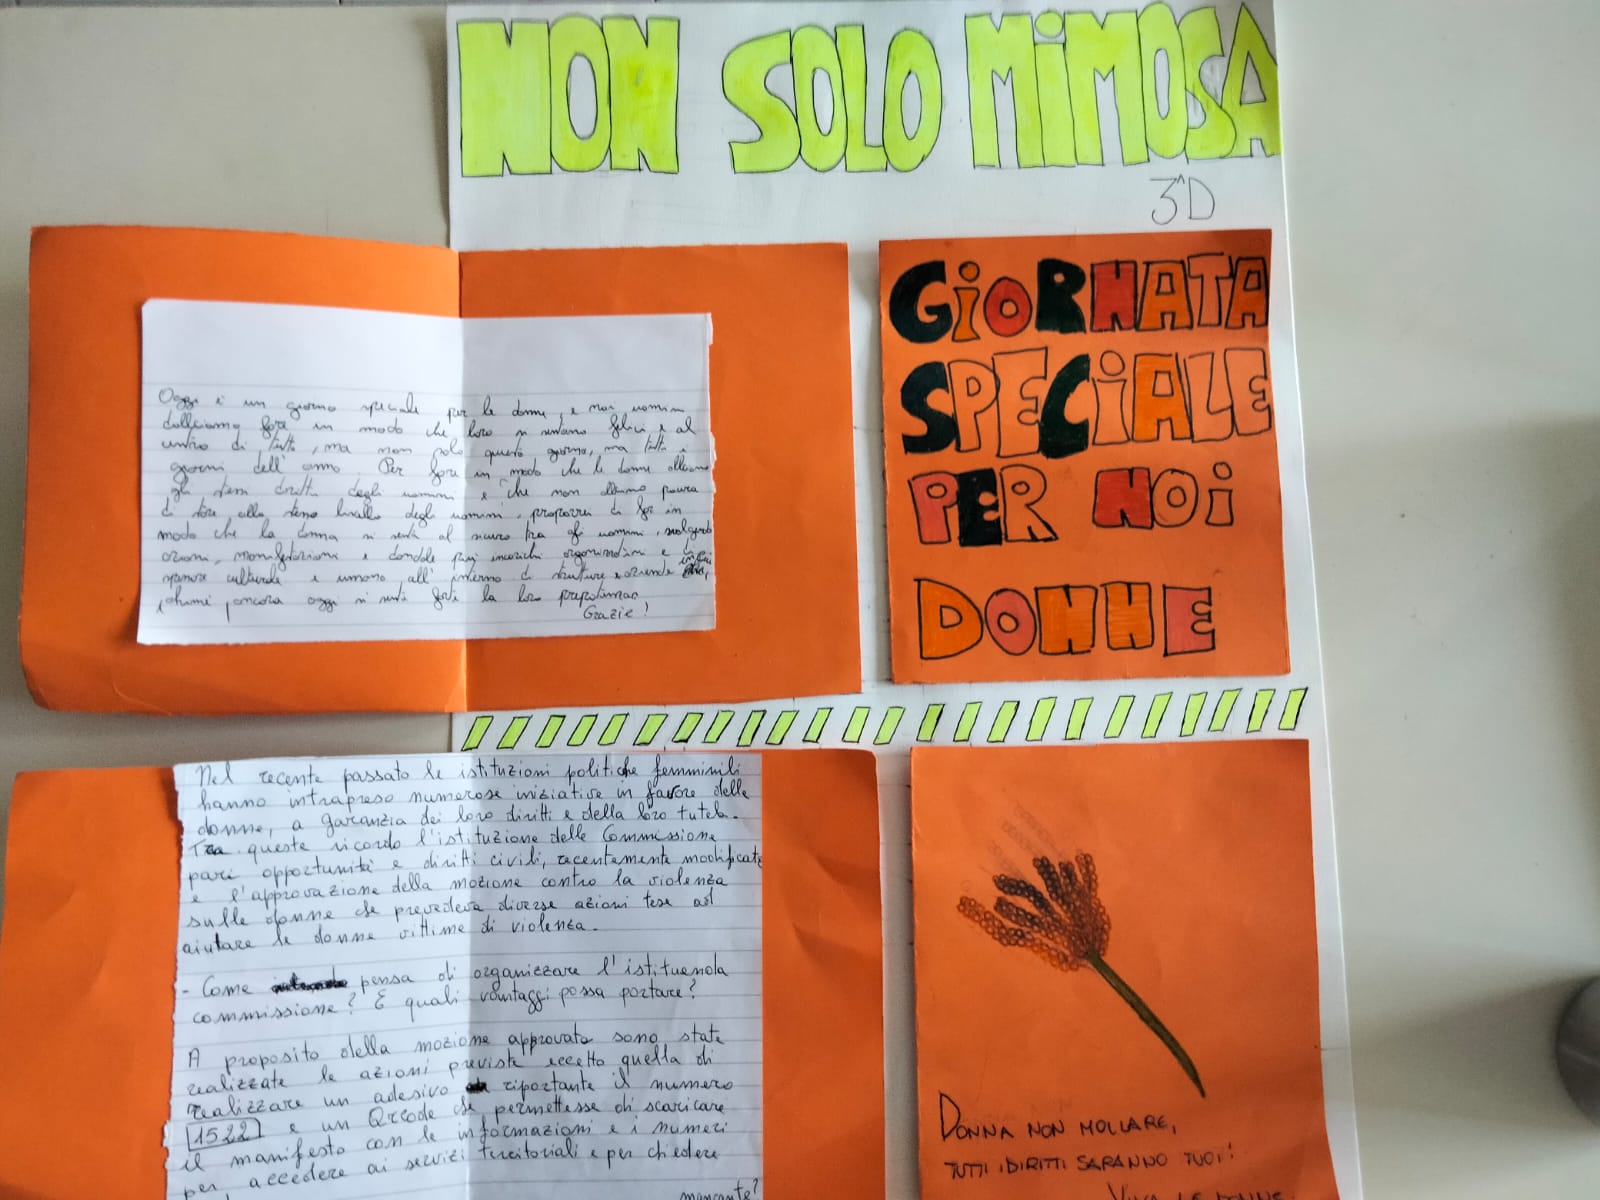 NON SOLO MiMOSA
3^D
Oggi è un giorno speciale per le donne, e noi uomini
dobbiamo fare in modo che loro si sentano felici e al
centro di tutto, ma non solo questo giorno, ma tutti i
giorni dell'anno. Per fare in modo che le donne abbiano
gli stessi diritti degli uomini e che non abbiano paura
di stare allo stesso livello degli uomini, proporrei di far in
modo che la donna si senta al sicuro tra gli uomini, svolgendo
azioni, manifestazioni e dandole più incarichi organizzativi e di
spessore culturale e umano all'interno di strutture e aziende in cui
, ahimé, ancora oggi si sente forte la loro
Grazie!
GiORNATA
SPECiALE
PER NOi
DONNE
Nel recente passato le istituzioni politiche femminili
hanno intrapreso numerose iniziative in favore delle
donne, a garanzia dei loro diritti e della loro tutela.
Tra queste ricordo l'istituzione delle Commissione
pari opportunità e diritti civili, recentemente modificata
e l'approvazione della mozione contro la violenza
sulle donne che prevedeva diverse azioni tese ad
aiutare le donne vittime di violenza.
- Come pensa di organizzare l'istituenda
commissione? E quali vantaggi possa portare?
A proposito della mozione approvata sono state
realizzate le azioni previste eccetto quella di
realizzare un adesivo riportante il numero
1522 e un Qrcode che permettesse di scaricare
il manifesto con le informazioni e i numeri
per accedere ai servizi territoriali e per chiedere
mancante?
DONNA NON MOLLARE,
TUTTI i DIRITTI SARANNO TUOI!
VIVA LE DONNE